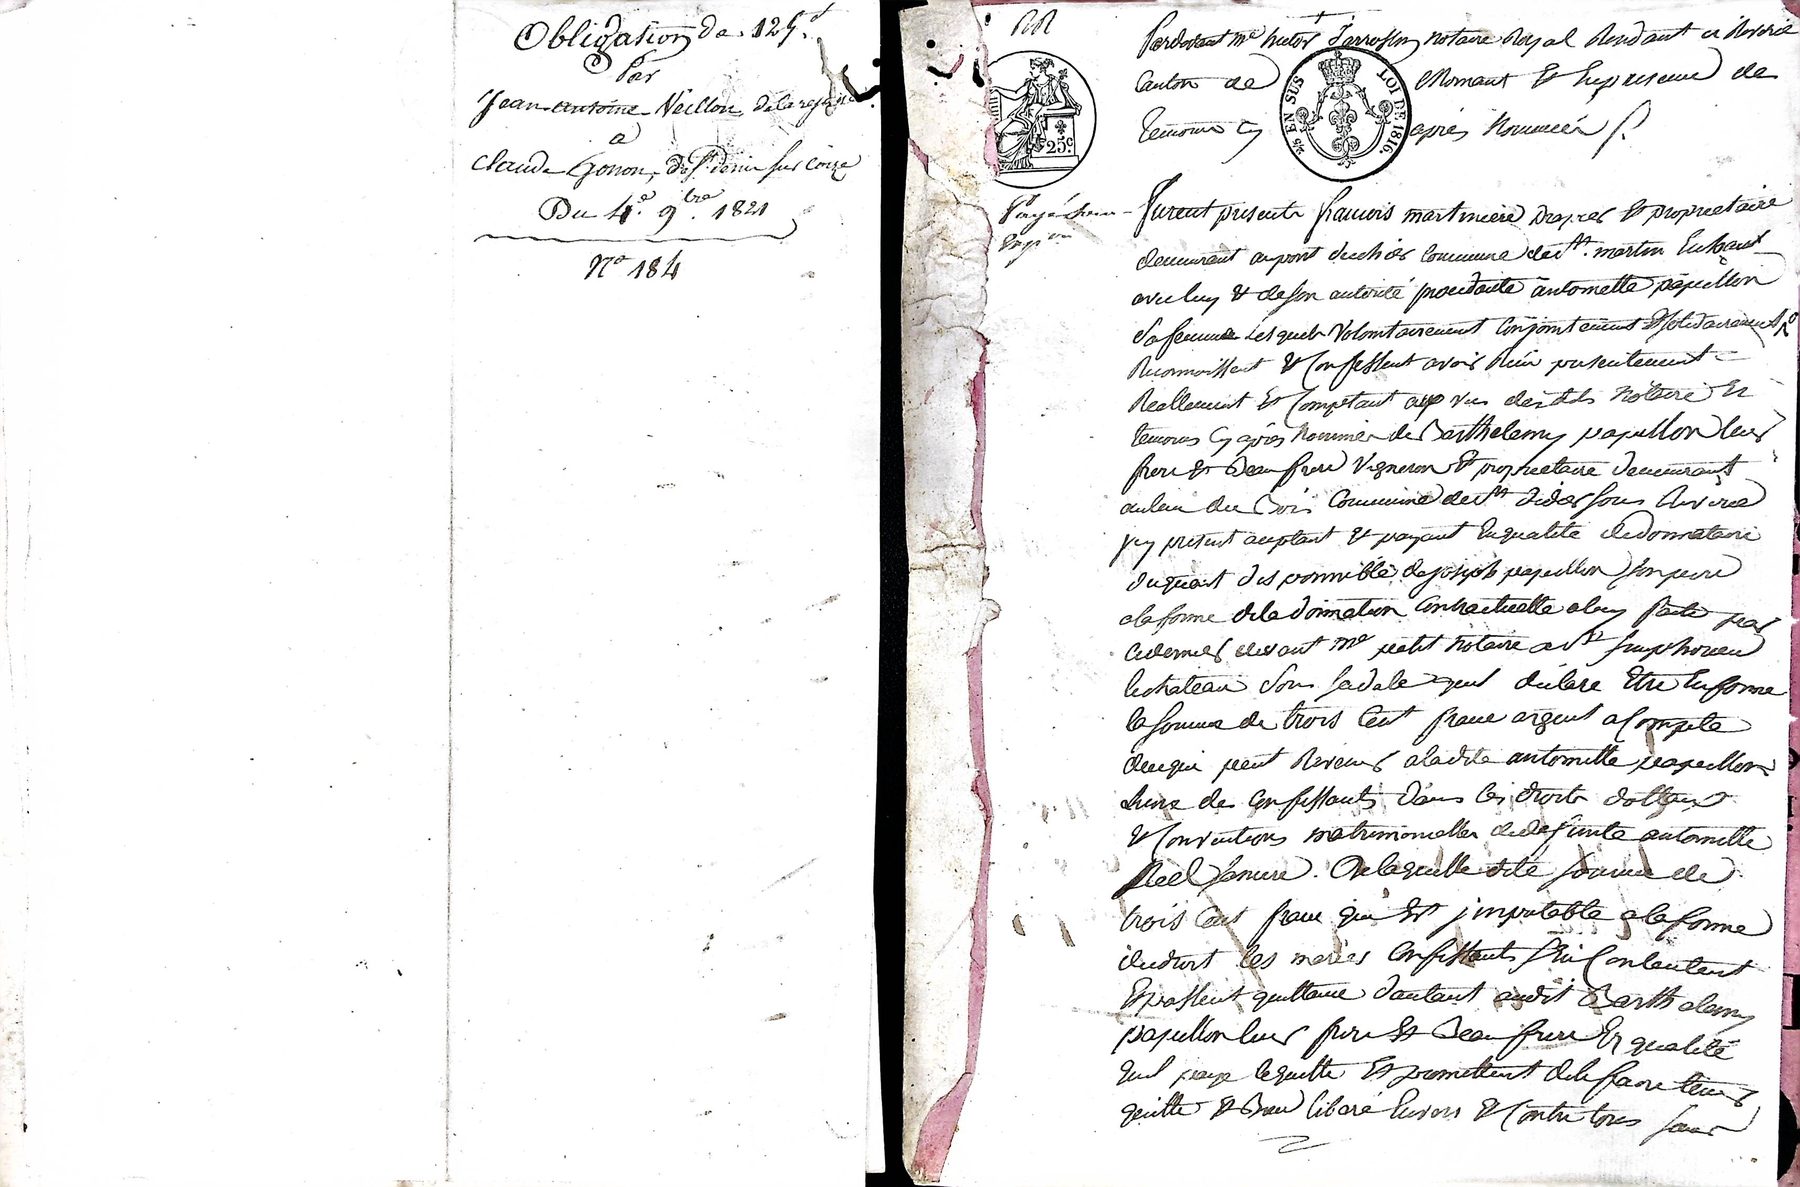 Obligation de 125.#
Par
Jean antoine Veillon de la
a
Claude Gonon, de St denis sur Coize
Du 4e. 9bre. 1821
No 184
Pardevant Me notaire Royal Residant a
Canton de Mornant Et En presence de
temoins cy après Nommés
EN SUS
LOI DE 1816.
25c.
furent presents francois martiniere Drapier Et proprietaire
demeurant au pont commune de st. martin En haut
avec luy & de son autorité procedante antoinette papillon
sa femme Lesquels Volontairement Conjointement Et solidairement
Reconnoissent & Confessent avoir Reçu presentement
Reellement Et Comptant aux vus desdits Notaire Et
temoins cy après Nommés de Barthelemy papillon leur
frere & Beau frere Vigneron Et proprietaire demeurant
au lieu du Bois Commune de st didier sous Riverie
icy present acceptant & payant En qualité de donnataire
du quart disponnible de joseph papillon son pere
a la forme de la donnation Contractuelle a luy faite par
ce dernier devant Me petit Notaire a St Simphorien
le chateau sous sa date quil déclare Etre En forme
la somme de trois Cent franc argent a Compte
de ce qui peut Revenir a ladite antoinette papillon
L'une des Confessants dans les droits dotaux
& Conventions matrimonielles de defunte antoinette
sa mere. De laquelle dite somme de
trois Cent franc qui Est jmputable a la forme
du droit les mariés Confessants s'En Contentent
Et passent quittance d'autant audit Barthelemy
papillon leur frere Et Beau frere En qualité
quil paye le quitte Et promettent de le faire tenir
quitte & Bien liberé Envers & Contre tous sans